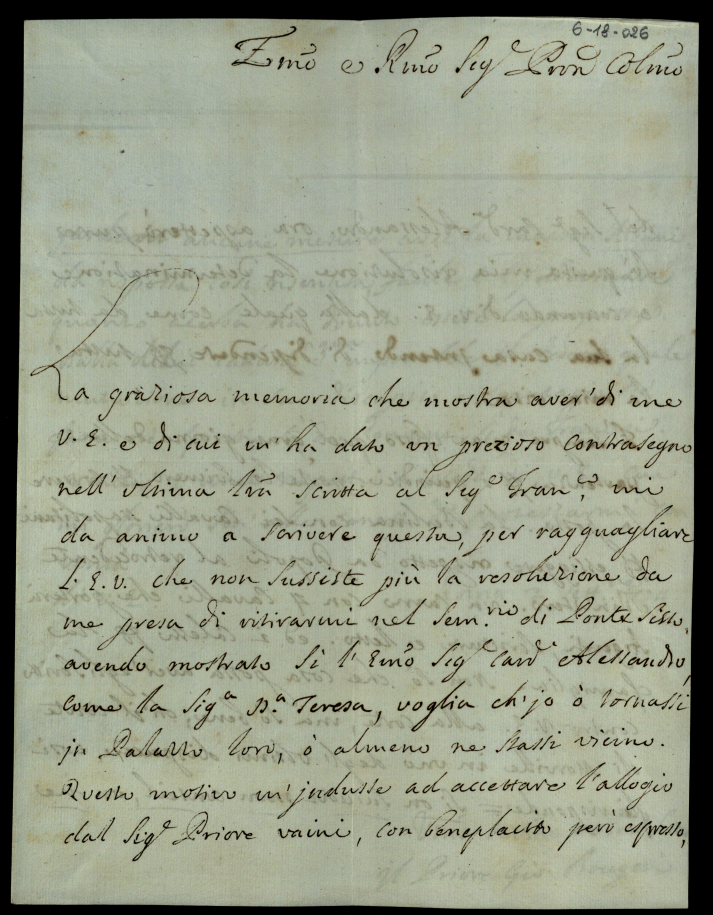 6-18-026
Emo e Rmo Sigr Pron Colmo
La graziosa memoria che mostra aver' di me
V. E. e di cui m'ha dato un prezioso contrasegno
nell' ultima lra scritta al Sigr Franco, mi
da animo a scrivere questa, per ragguagliare
l'E.V. che non sussiste più la resoluzione da
me presa di ritirarmi nel Sem.rio di Ponte Sisto,
avendo mostrato sì l'Emo Sigr Cardl Alessandro,
come la Siga Da Teresa, voglia ch'jo ò tornassi
jn Palazzo loro, ò almeno ne stassi vicino.
Questo motivo m'jndusse ad accettare l'allogio
dal Sigr Priore Vaini, con beneplacito però espresso,